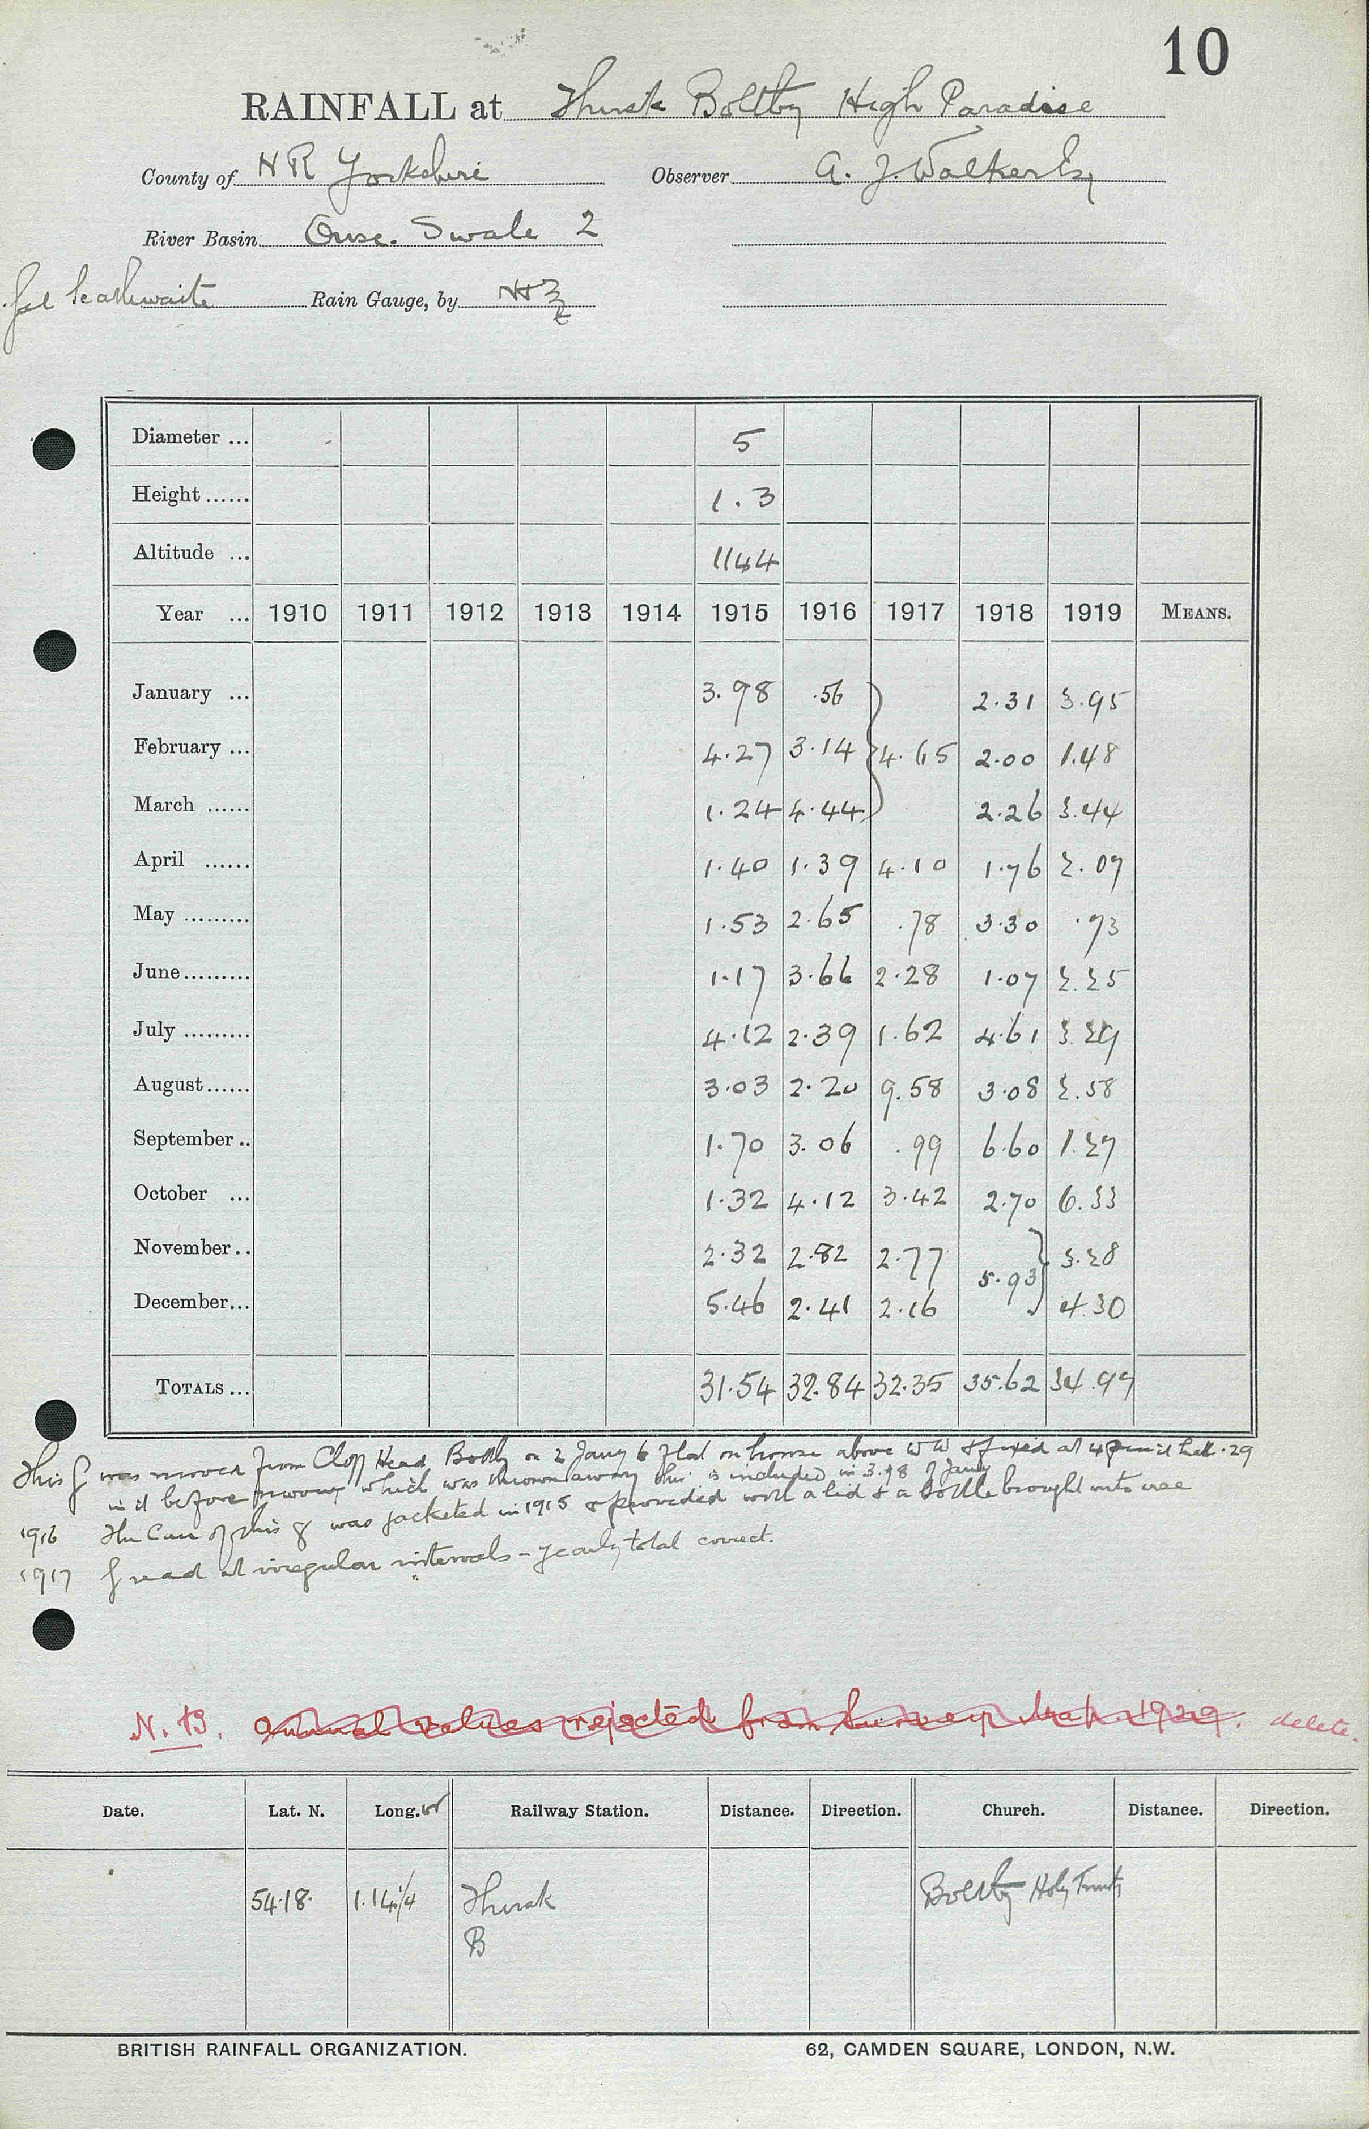 10
RAINFALL at Thirsk Boltby High Paradise
County of N R Yorkshire Observer A. J. Walker Esq
River Basin Ouse. Swale 2
Rain Gauge, by
Diameter ... 5
Height ...... 1.3
Altitude ... 1144
Year ... 1910 1911 1912 1913 1914 1915 1916 1917 1918 1919 MEANS.
January ... 3.98 .56 2.31 3.95
February ... 4.27 3.14 4.65 2.00 1.48
March ...... 1.24 4.44 2.26 3.44
April ...... 1.40 1.39 4.10 1.76 2.07
May ......... 1.53 2.65 .78 3.30 .73
June ......... 1.17 3.66 2.28 1.07 2.25
July ......... 4.12 2.39 1.62 4.61 3.29
August ...... 3.03 2.20 9.58 3.08 2.58
September .. 1.70 3.06 .99 6.60 1.27
October ... 1.32 4.12 3.42 2.70 6.33
November .. 2.32 2.82 2.77 5.93 3.28
December ... 5.46 2.41 2.16 4.30
TOTALS ... 31.54 32.84 32.35 35.62 34.97
This g was moved from Head Boltby on 2 Jany to on house above & fixed at 4 .29
in it before moving which was thrown away this is included in 3.98 of Jany
1916 The Case of this g was jacketed in 1915 & provided with a lid & a bottle brought into use
1917 g read at irregular intervals - yearly total correct.
N.B. Annual values rejected from Survey 1929. delete.
Date. Lat. N. Long. W Railway Station. Distance. Direction. Church. Distance. Direction.
54.18. 1.14 1/4 Thirsk Boltby Holy Trinity
B
BRITISH RAINFALL ORGANIZATION. 62, CAMDEN SQUARE, LONDON, N.W.